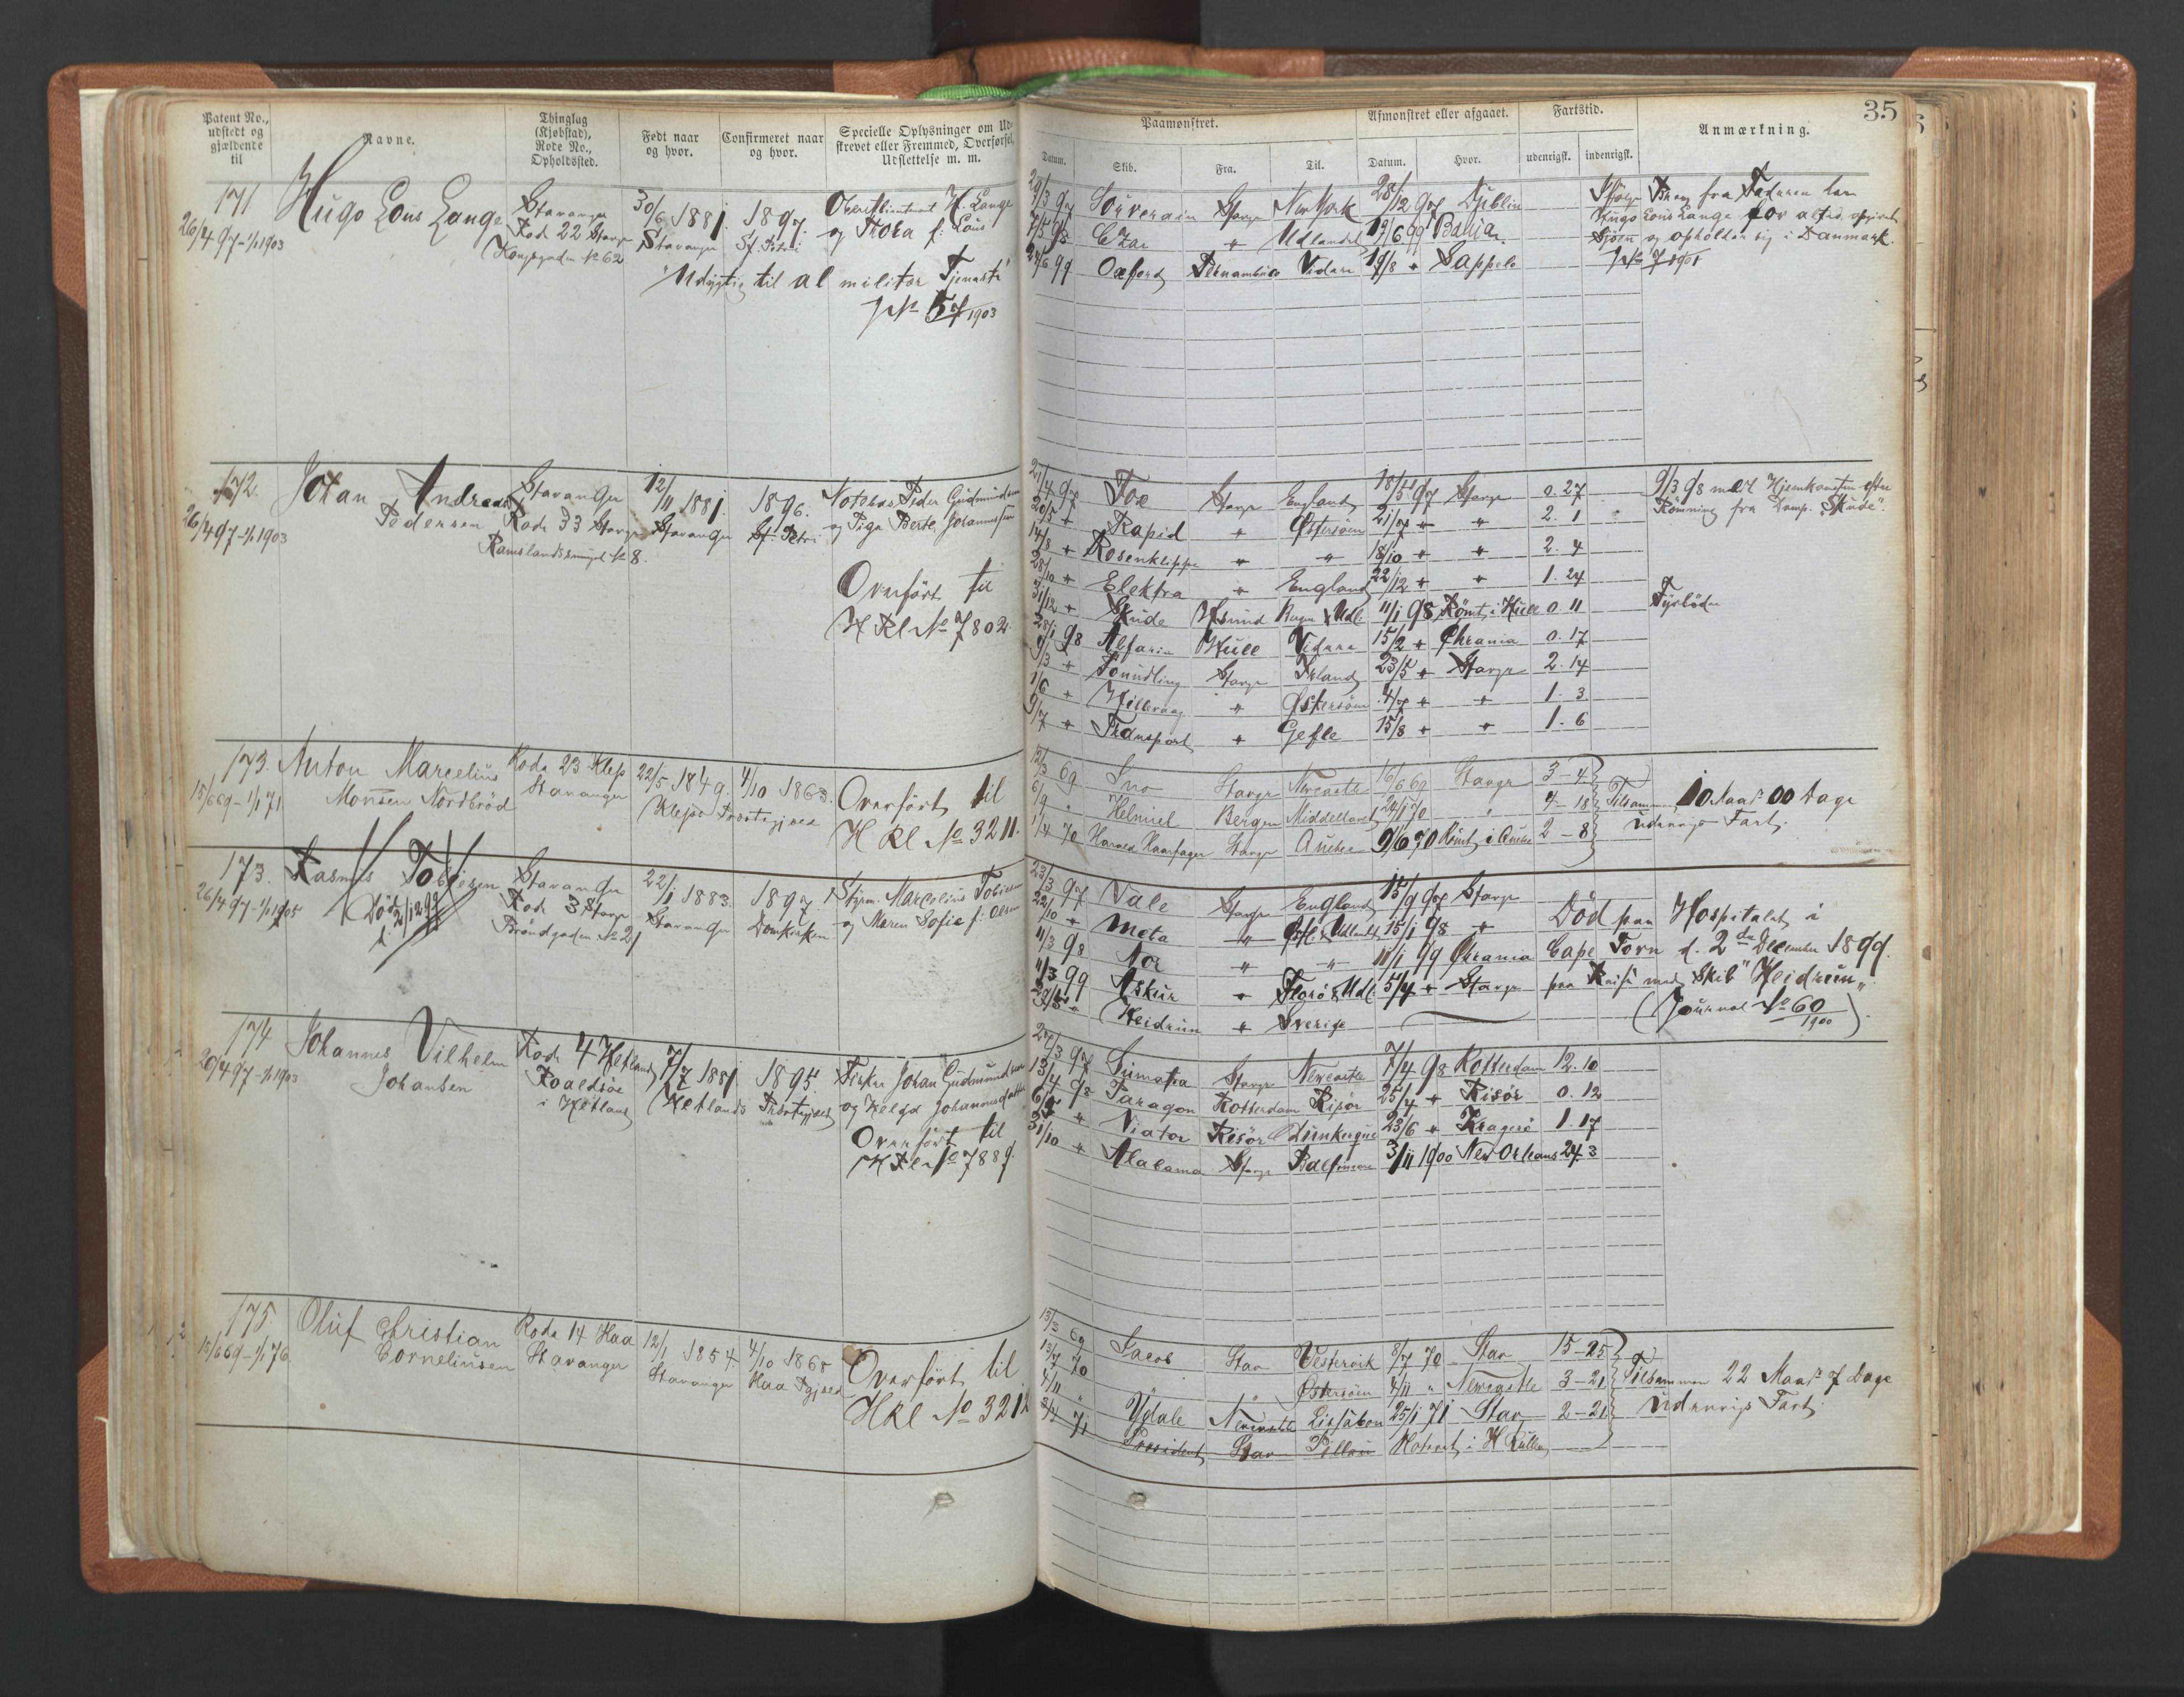 Patent No.,
udstedt og
gjældende
til
Navne.
Thinglag
(Kjøbstad),
Rode No.,
Opholdssted.
Født naar
og hvor.
Confirmeret naar
og hvor.
Specielle Oplysninger om Ud-
skrevet eller Fremmed, Overførsel,
Udslettelse m. m.
171
26/4 97-1/1 1903
Hugo Lous Lange
Stavanger
Rode 22 Stavgr
Kongsgaden No 62
30/6 1881.
Stavanger
1897.
St. Petri
Oberstlieutenant H. Lange
og Thora f. Lous
"Udygtig til al militær Tjeneste"
JNo 57/1903
172.
26/4 97-1/1 1903
Johan Andreas
Pedersen
Stavanger
Rode 33 Stavgr
Ramslandssmuget No 8.
12/11 1881.
Stavanger
1896.
St. Petri
Notebas Peder Gudmundsen
og Pige Berte Johannesen
Overført til
H Rl No 7802
173.
15/6 69-1/1 71
Anton Marcelius
Monsen Nordbrød
Rode 23 Klep
Stavanger
22/5 1849.
4/10 1863.
Kleps Præstegjæld
Overført til
H Rl No 3211.
173.
26/4 97-1/1 1905
Rasmus Tobiesen
Død
2/12 99
Stavanger
Rode 3 Stavgr
Strandgaden No 21
22/1 1883.
Stavanger
1897
Domkirken
Styrm. Marcelius Tobiesen
og Maren Sofie f. Olsen
174
20/4 97-1/1 1903
Johannes Vilhelm
Johansen
Rode 4 Hetland
Roaldsøe
i Hetland
7/7 1881
1895.
Hetlands Præstegjæld
Fisker Johan Gudmundsen
og Helga Johannesdatter
Overført til
H Rl No 7889.
175.
15/6 69-1/1 76
Oluf Christian
Corneliusen
Rode 14 Haa
Stavanger
12/1 1854.
Stavanger
4/10 1868
Haa Pgjæld
Overført til
H Rl No 3212
35
Paamønstret.
Afmønstret eller afgaaet.
Fartstid.
Anmærkning.
Datum.
Skib.
Fra.
Til.
Datum.
Hvor.
udenrigsk.
indenrigsk.
29/3 97 Souverain Stavgr New York 28/12 97 Dublin
7/5 98 Czar " Udlandet 19/6 99 Bahia.
24/6 99 Oxford Pernambuco Videre 19/8 " Sappelo
Ifølge Brev fra Faderen har
Hugo Lous Lange for altid opgivet
Sjøen og opholder sig i Danmark.
27/4 97 Fox Stavgr England 18/5 97 Stavgr 0. 27
20/5 " Rapid " Østersøen 21/7 " " 2. 1
14/8 " Rosenklippe " " 18/10 " " 2. 4
28/10 " Elektra " England 22/12 " " 1. 24
31/12 " Skude Hsund Udl 11/1 98 Rømt i Hull 0. 11
28/1 98 Hull Videre 15/2 " Chrania 0. 17
9/3 " Foundling Stavgr Irland 23/5 " Stavgr 2. 14
1/6 " Hillevaag " Østersøen 4/7 " " 1. 3
9/7 " Transport " Gefle 15/8 " " 1. 6
9/3 98 meldt Hjemkomsten efter
Rømning fra Damp. "Skude".
Fyrbøder
12/3 69 Sno Stavgr Newcastle 16/6 69 Stavgr 3-4
6/9 " Helmich Bergen Middelhavet 24/1 70 " 4-18
1/4 70 Harald Haarfager Stavgr Quebec 9/6 70 Rømt i Quebec 2-8
Tilsammen 10 Maan 00 Dage
udenrigs Fart.
23/3 97 Vale Stavgr England 15/9 97 Stavgr
22/10 " Meta " 15/1 98 "
11/3 98 Nor " " 11/1 99 Chrania
11/3 99 Askur " Florø & Udl. 5/4 " Stavgr
29/5 " Heidrun " Sverige
Død paa Hospitalet i
Cape Town d. 2den December 1899.
paa Reise med Skib "Heidrun"
(Journal No 60/1900).
27/3 97 Sumatra Stavgr Newcastle 7/4 98 Rotterdam 12. 10
13/4 98 Paragon Rotterdam Risør 25/4 " Risør 0. 12
6/5 " Viator Risør Dunkerque 23/6 " Kragerø 1. 17
31/10 " Alabama Stavgr Baltimore 3/11 1900 New Orleans 24. 3
13/3 69 Jacob Stav Vestervik 8/7 70 Stav 15-25
13/7 70 " Østersøen 4/11 " Newcastle 3-21
4/11 " Ydale Newcastle Lissabon 25/1 71 Stav 2-21
3/4 71 President Stav Pillau Noteret i H Rullen
Tilsammen 22 Maan 7 Dage
udenrigs Fart.